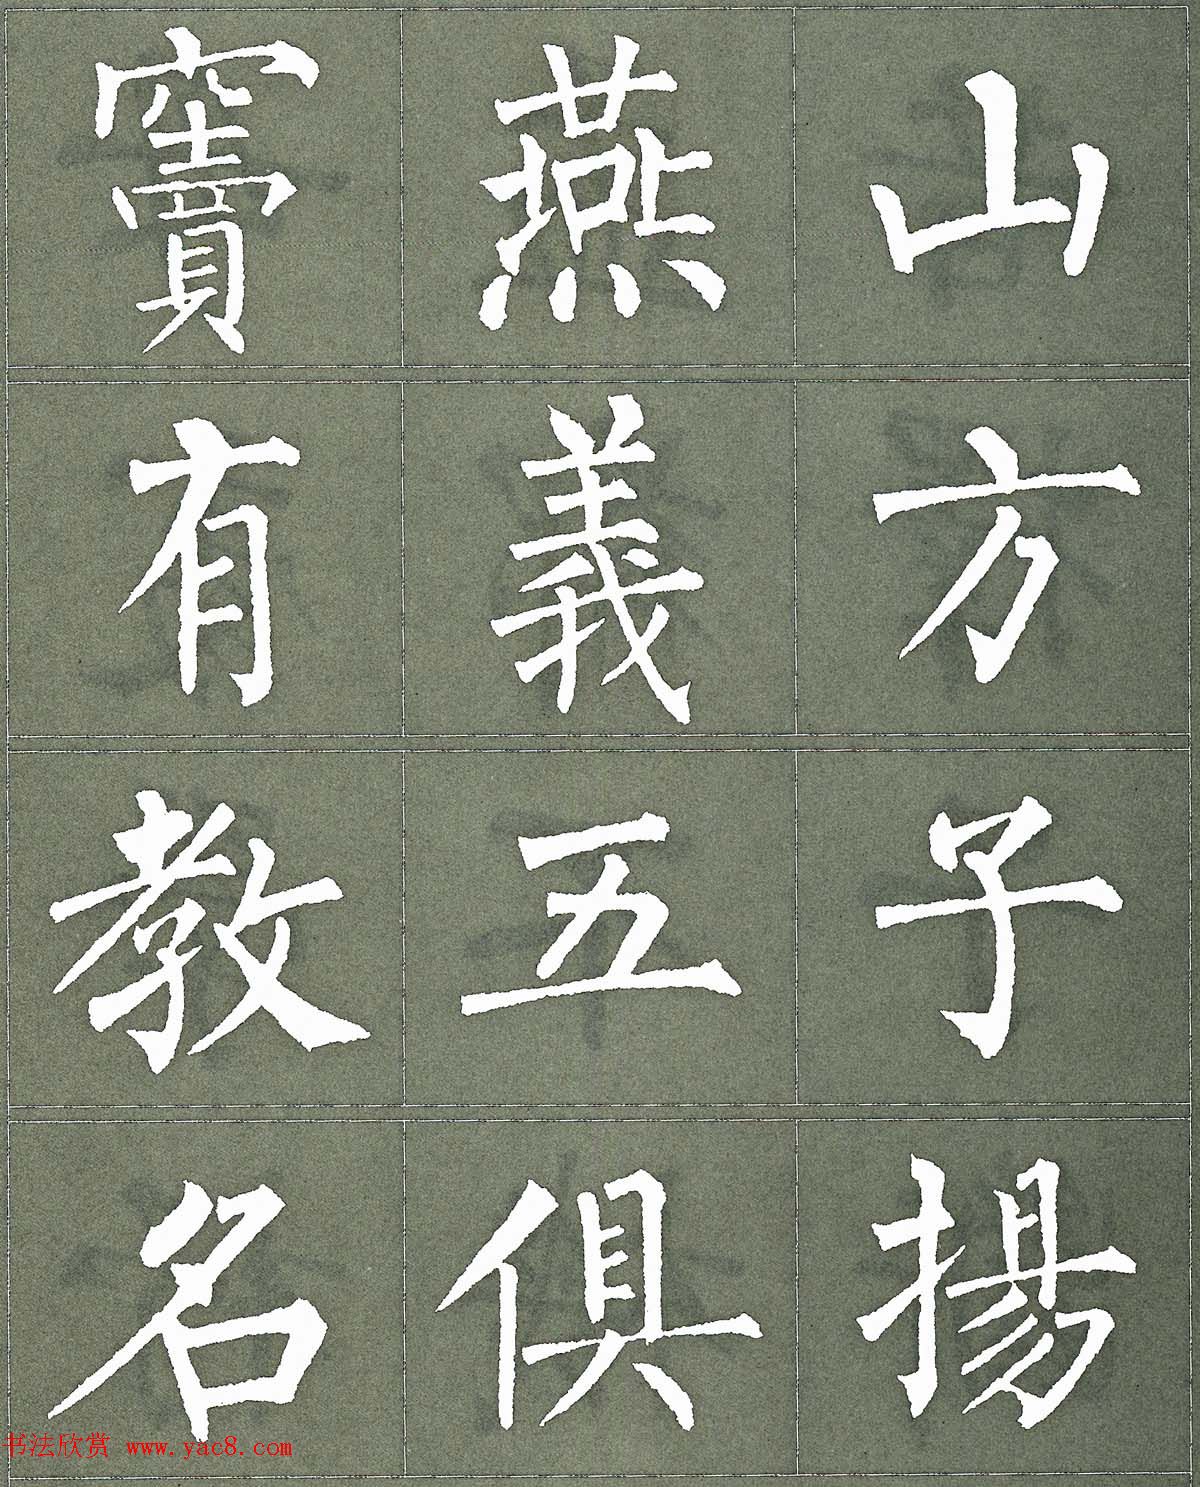 竇燕山
有義方
教五子
名俱揚
书法欣赏 www.yac8.com